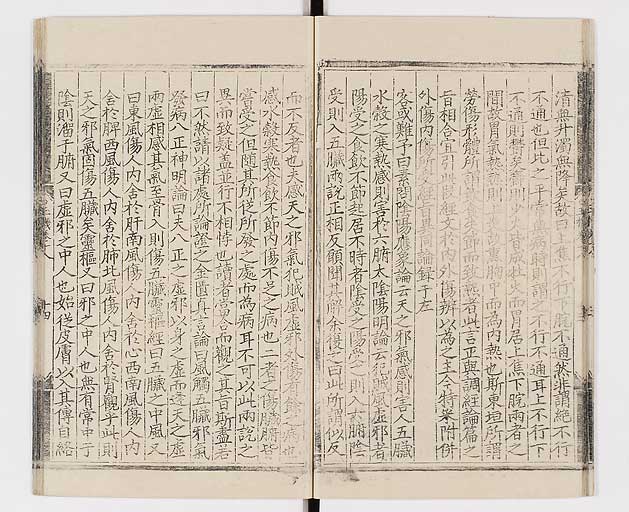 清無升濁無降矣故曰上焦不行下脘不通然非謂絕不行
不通也但比之平常無病時則謂之不行不通耳上不行下
不通則欝矣欝則少火皆成壯火而胃居上焦下脘兩者之
間故胃氣熱熱則上炎故熏胸中而為內熱也斯東垣所謂
勞傷形體所謂飲食失節而致熱者此言正與調經論篇之
旨相合宜引此段經文於內外傷辨以為之主今特采附併
外傷內傷所受經旨異同論録于左
客或難予曰素問陰陽應象論云天之邪氣感則害人五臟
水穀之寒熱感則害於六腑太陰陽明論云犯賊風虛邪者
陽受之食飲不節起居不時者陰受之陽受之則入六腑陰
受則入五臟兩說正相反願聞其解余復之曰此所謂似反
而不反者也夫感天之邪氣犯賊風虛邪外傷有餘之病也
感水穀寒熱食飲不節內傷不足之病也二者之傷臟腑皆
嘗受之但隨其所從所發之處而為病耳不可以此兩說之
異而致疑蓋並行不相悖也讀者當合而觀之其旨斯盡若
曰不然請以諸處所論證之金匱真言論曰風觸五臟邪氣
發病八正神明論曰夫八正之虛邪以身之虛而逢天之虛
兩虛相感其氣至骨入則傷五臟靈樞經曰五臟之中風又
曰東風傷人內舍於肝南風傷人內舍於心西南風傷人內
舍於脾西風傷人內舍於肺北風傷人內舍於腎觀乎此則
天之邪氣固傷五臟矣靈樞又曰邪之中人也無有常中于
陰則溜于腑又曰虛邪之中人也始從皮膚以入其傳自絡